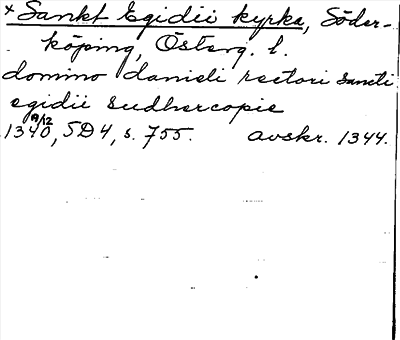 × Sankt Egidii kyrka, Söder-
köping, Österg. l.
domino danieli rectori sancti
egidii sudhercopie
19/12
1340, SD 4, s. 755. avskr. 1344.